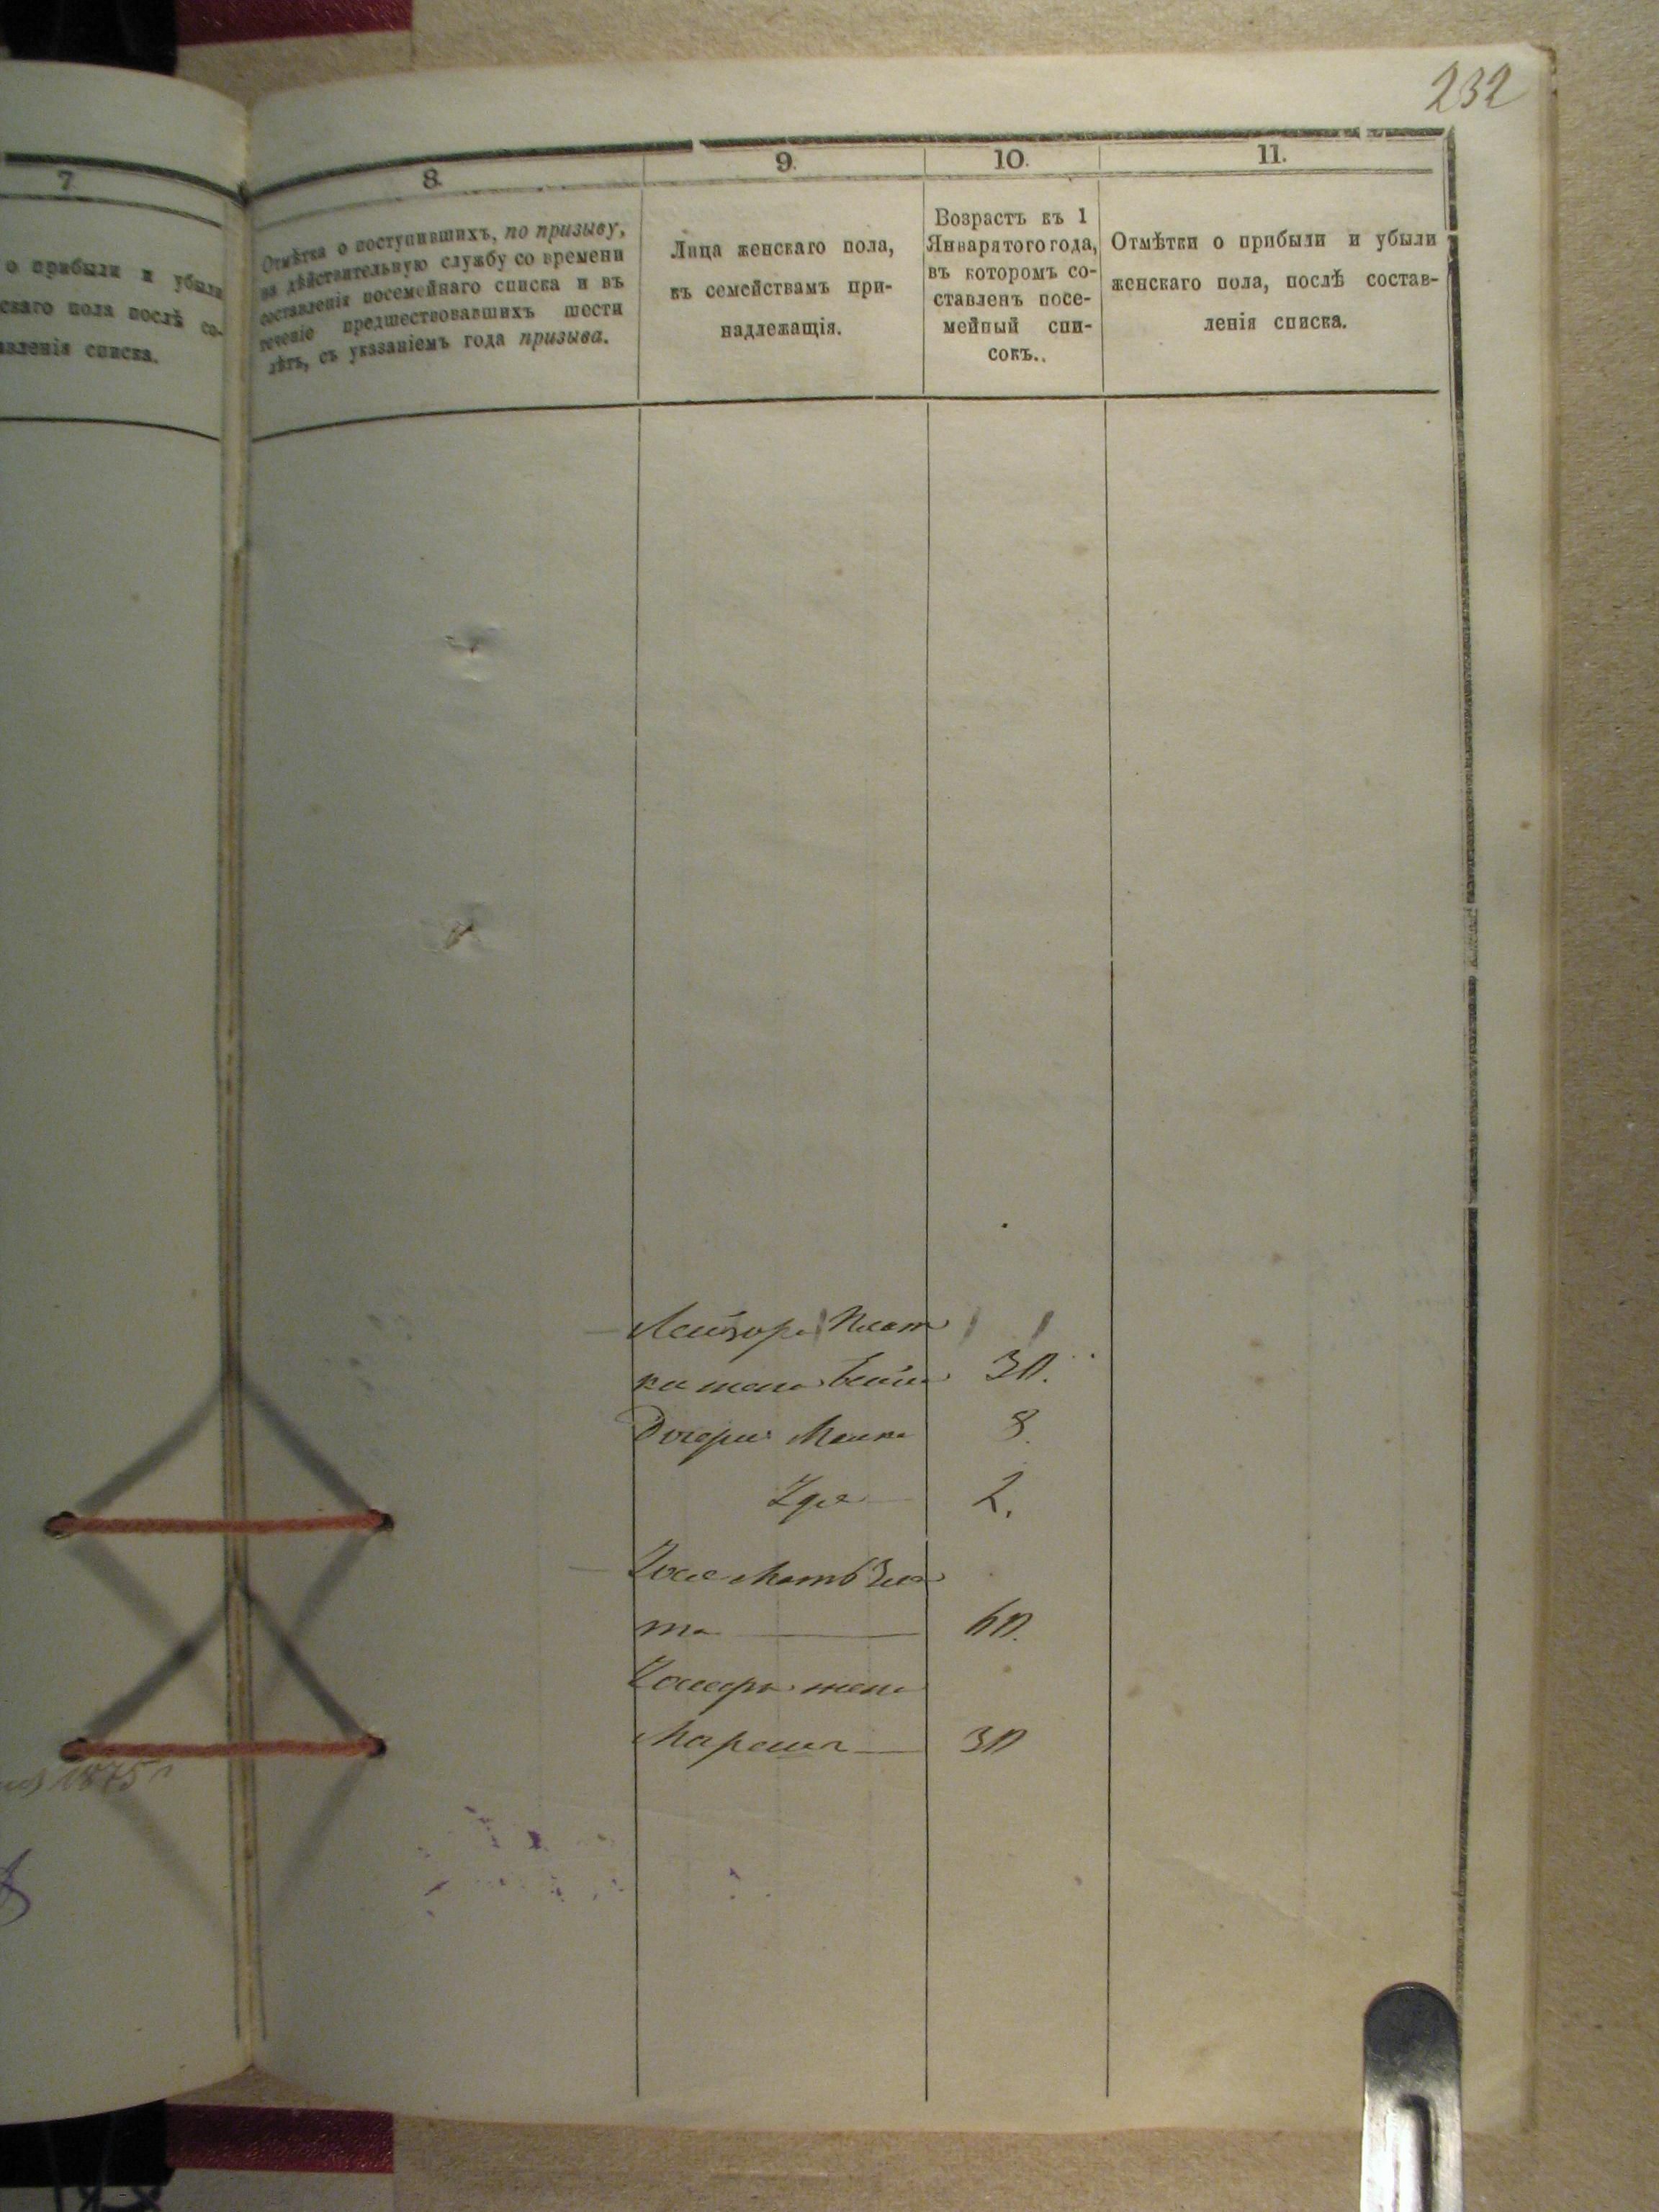 232
7
о прибыли и убыли
скаго пола послѣ со-
авленія списка.
8.
Отмѣтка о поступившихъ, по призыву,
на дѣйствительную службу со времени
составленія посемейнаго списка и въ
теченіе предшествовавшихъ шести
лѣтъ, съ указаніемъ года призыва.
9.
Лица женскаго пола,
къ семействамъ при-
надлежащія.
10.
Возрастъ къ 1
Января того года,
въ которомъ со-
ставленъ посе-
мейный спи-
сокъ.
11.
Отмѣтки о прибыли и убыли
женскаго пола, послѣ состав-
ленія списка.
Лейзора
жена 30.
Дочери: 8.
2.
Мать
та 60.
жена
30
1875